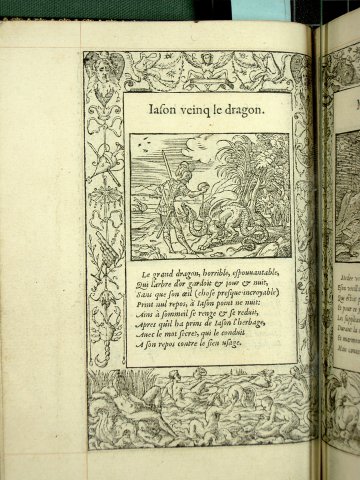 Iason veinq le dragon.
Le grand dragon, horrible, espouuantable,
Qui l'arbre d'or gardoit & iour & nuit,
Sans que son œil (chose presque incroyable)
Print nul repos, à Iason point ne nuit:
Ains à sommeil se renge & se reduit,
Apres qu'il ha pruns de Iason l'herbage,
Auec le mot secret, qui le conduit
A son repos contre le sien usage.